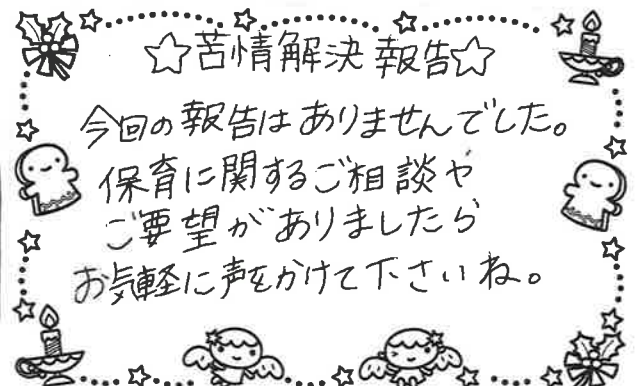 ☆苦情解決報告☆
今回の報告はありませんでした。
保育に関するご相談や
ご要望がありましたら
お気軽に声をかけて下さいね。